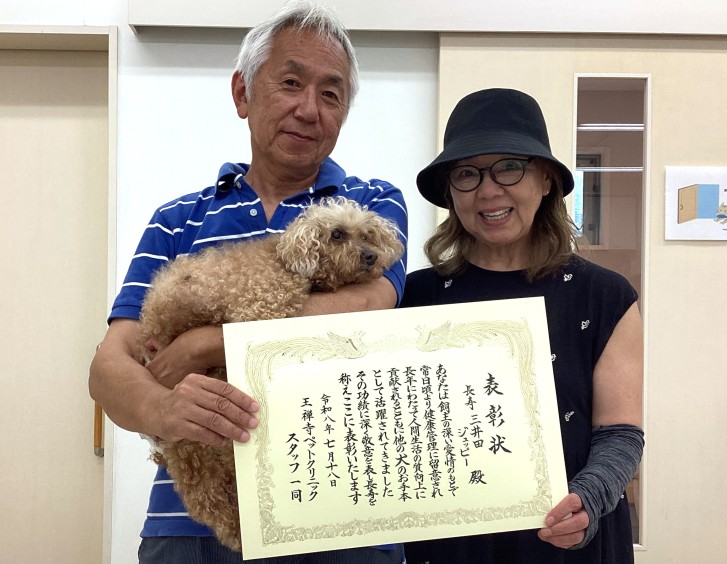 表彰状
長寿 三井田
ジュッピー 殿
あなたは飼主の深い愛情のもとで
常日頃より健康管理に留意され
長年にわたって人間生活の質向上に
貢献されるとともに他の犬のお手本
として活躍されてきました
その功績に深く敬意を表し長寿を
称えここに表彰いたします
令和八年七月十八日
王禅寺ペットクリニック
スタッフ一同